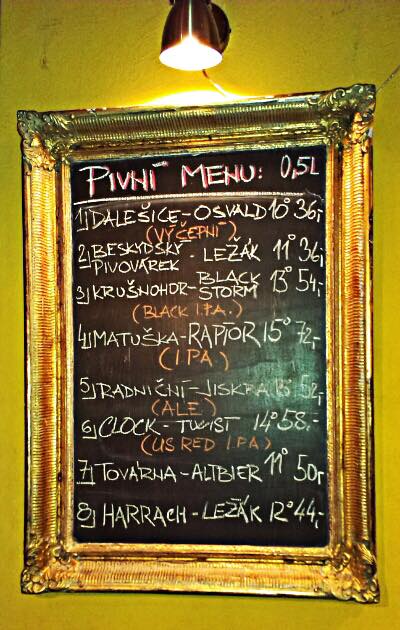 PIVNÍ MENU: 0,5L
1) DALEŠICE - OSVALD 10° 36,-
(VÝČEPNÍ)
2) BESKYDSKÝ PIVOVÁREK - LEŽÁK 11° 36,-
3) KRUŠNOHOR - BLACK STORM 13° 54,-
(BLACK I.P.A.)
4) MATUŠKA - RAPTOR 15° 72,-
(IPA)
5) RADNIČNÍ - JISKRA 13° 52,-
(ALE)
6) CLOCK - TWIST 14° 58.-
(US RED I.P.A)
7) TOVÁRNA - ALTBIER 11° 50,-
8) HARRACH - LEŽÁK 12° 44,-